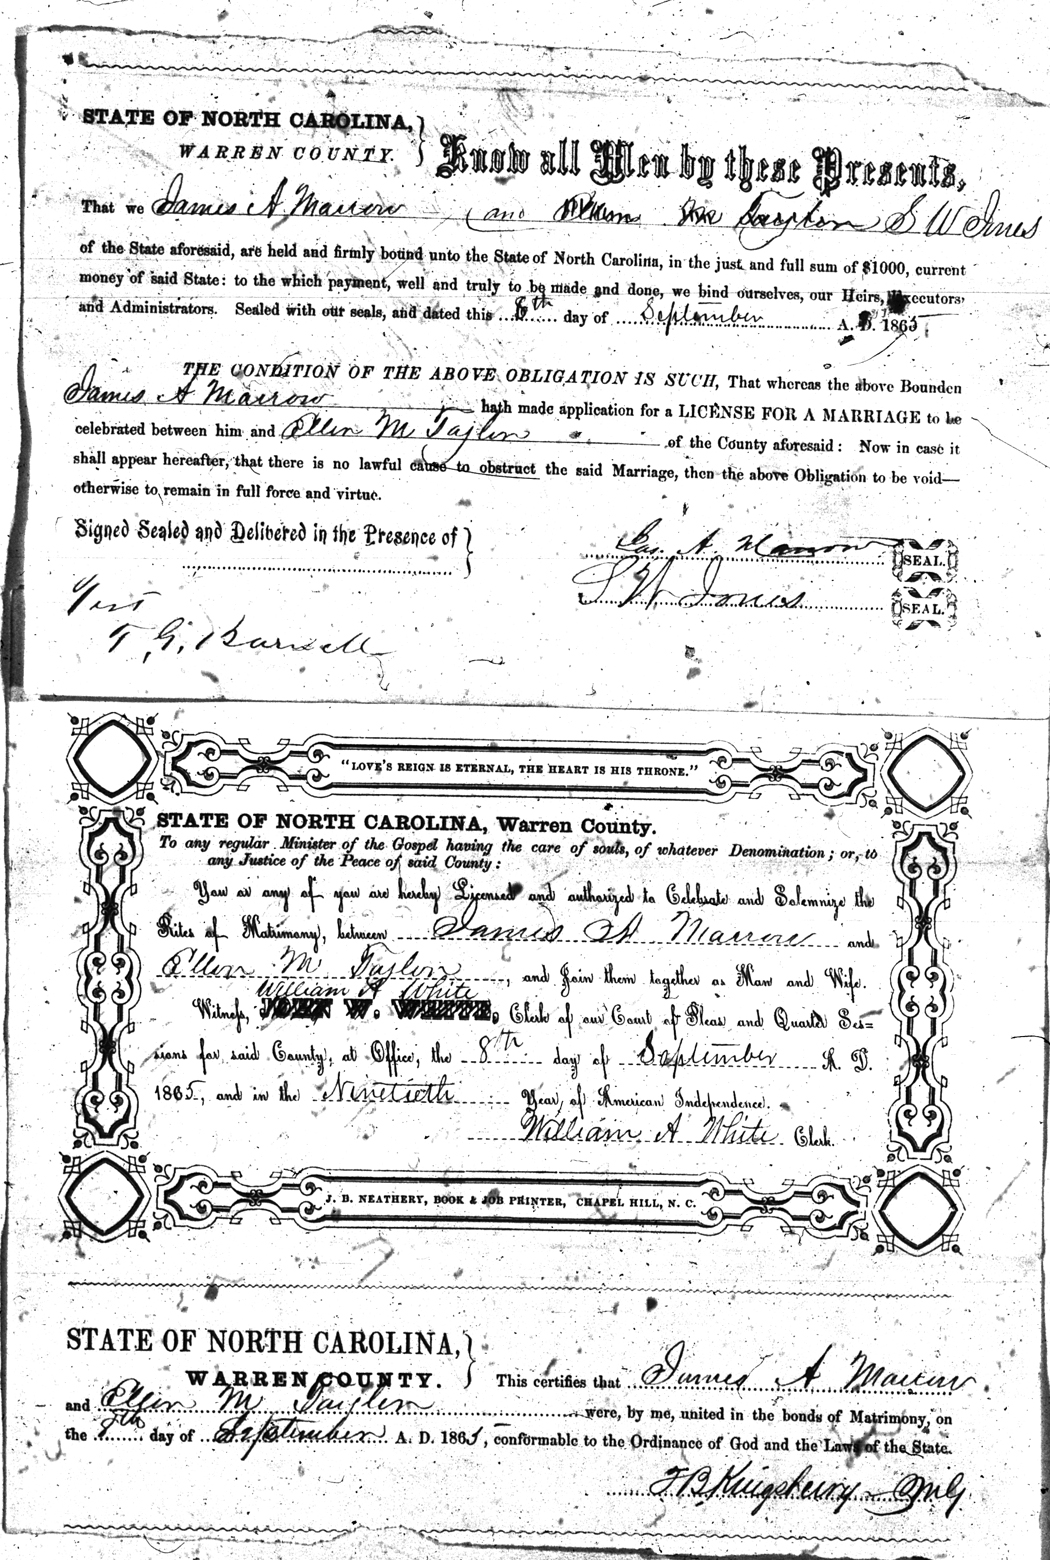 STATE OF NORTH CAROLINA,
WARREN COUNTY.
Know all Men by these Presents,
That we James A Marrow and S W Jones
of the State aforesaid, are held and firmly bound unto the State of North Carolina, in the just and full sum of $1000, current
money of said State: to the which payment, well and truly to be made and done, we bind ourselves, our Heirs, Executors
and Administrators. Sealed with our seals, and dated this 8th day of September A. D. 1865
THE CONDITION OF THE ABOVE OBLIGATION IS SUCH, That whereas the above Bounden
James A Marrow hath made application for a LICENSE FOR A MARRIAGE to be
celebrated between him and Ellen M Taylor of the County aforesaid: Now in case it
shall appear hereafter, that there is no lawful cause to obstruct the said Marriage, then the above Obligation to be void—
otherwise to remain in full force and virtue.
Signed Sealed and Delivered in the Presence of
Jas. A. Marrow SEAL.
S W Jones SEAL.
Test
"LOVE'S REIGN IS ETERNAL, THE HEART IS HIS THRONE."
STATE OF NORTH CAROLINA, Warren County.
To any regular Minister of the Gospel having the care of souls, of whatever Denomination; or, to
any Justice of the Peace of said County:
You or any of you are hereby Licensed and authorized to Celebrate and Solemnize the
Rites of Matrimony, between James A Marrow and
Ellen M Taylor, and Join them together as Man and Wife.
William A White
Witness, JOHN W. WHITE, Clerk of our Court of Pleas and Quarter Ses=
sions for said County, at Office, the 8th day of September A. D.
1865, and in the Ninetieth Year, of American Independence.
William A White Clerk.
J. B. NEATHERY, BOOK & JOB PRINTER, CHAPEL HILL, N. C.
STATE OF NORTH CAROLINA,
WARREN COUNTY.
This certifies that James A Marrow
and Ellen M Taylor were, by me, united in the bonds of Matrimony, on
the 8th day of September A. D. 1865, conformable to the Ordinance of God and the Laws of the State.
Kingsbury